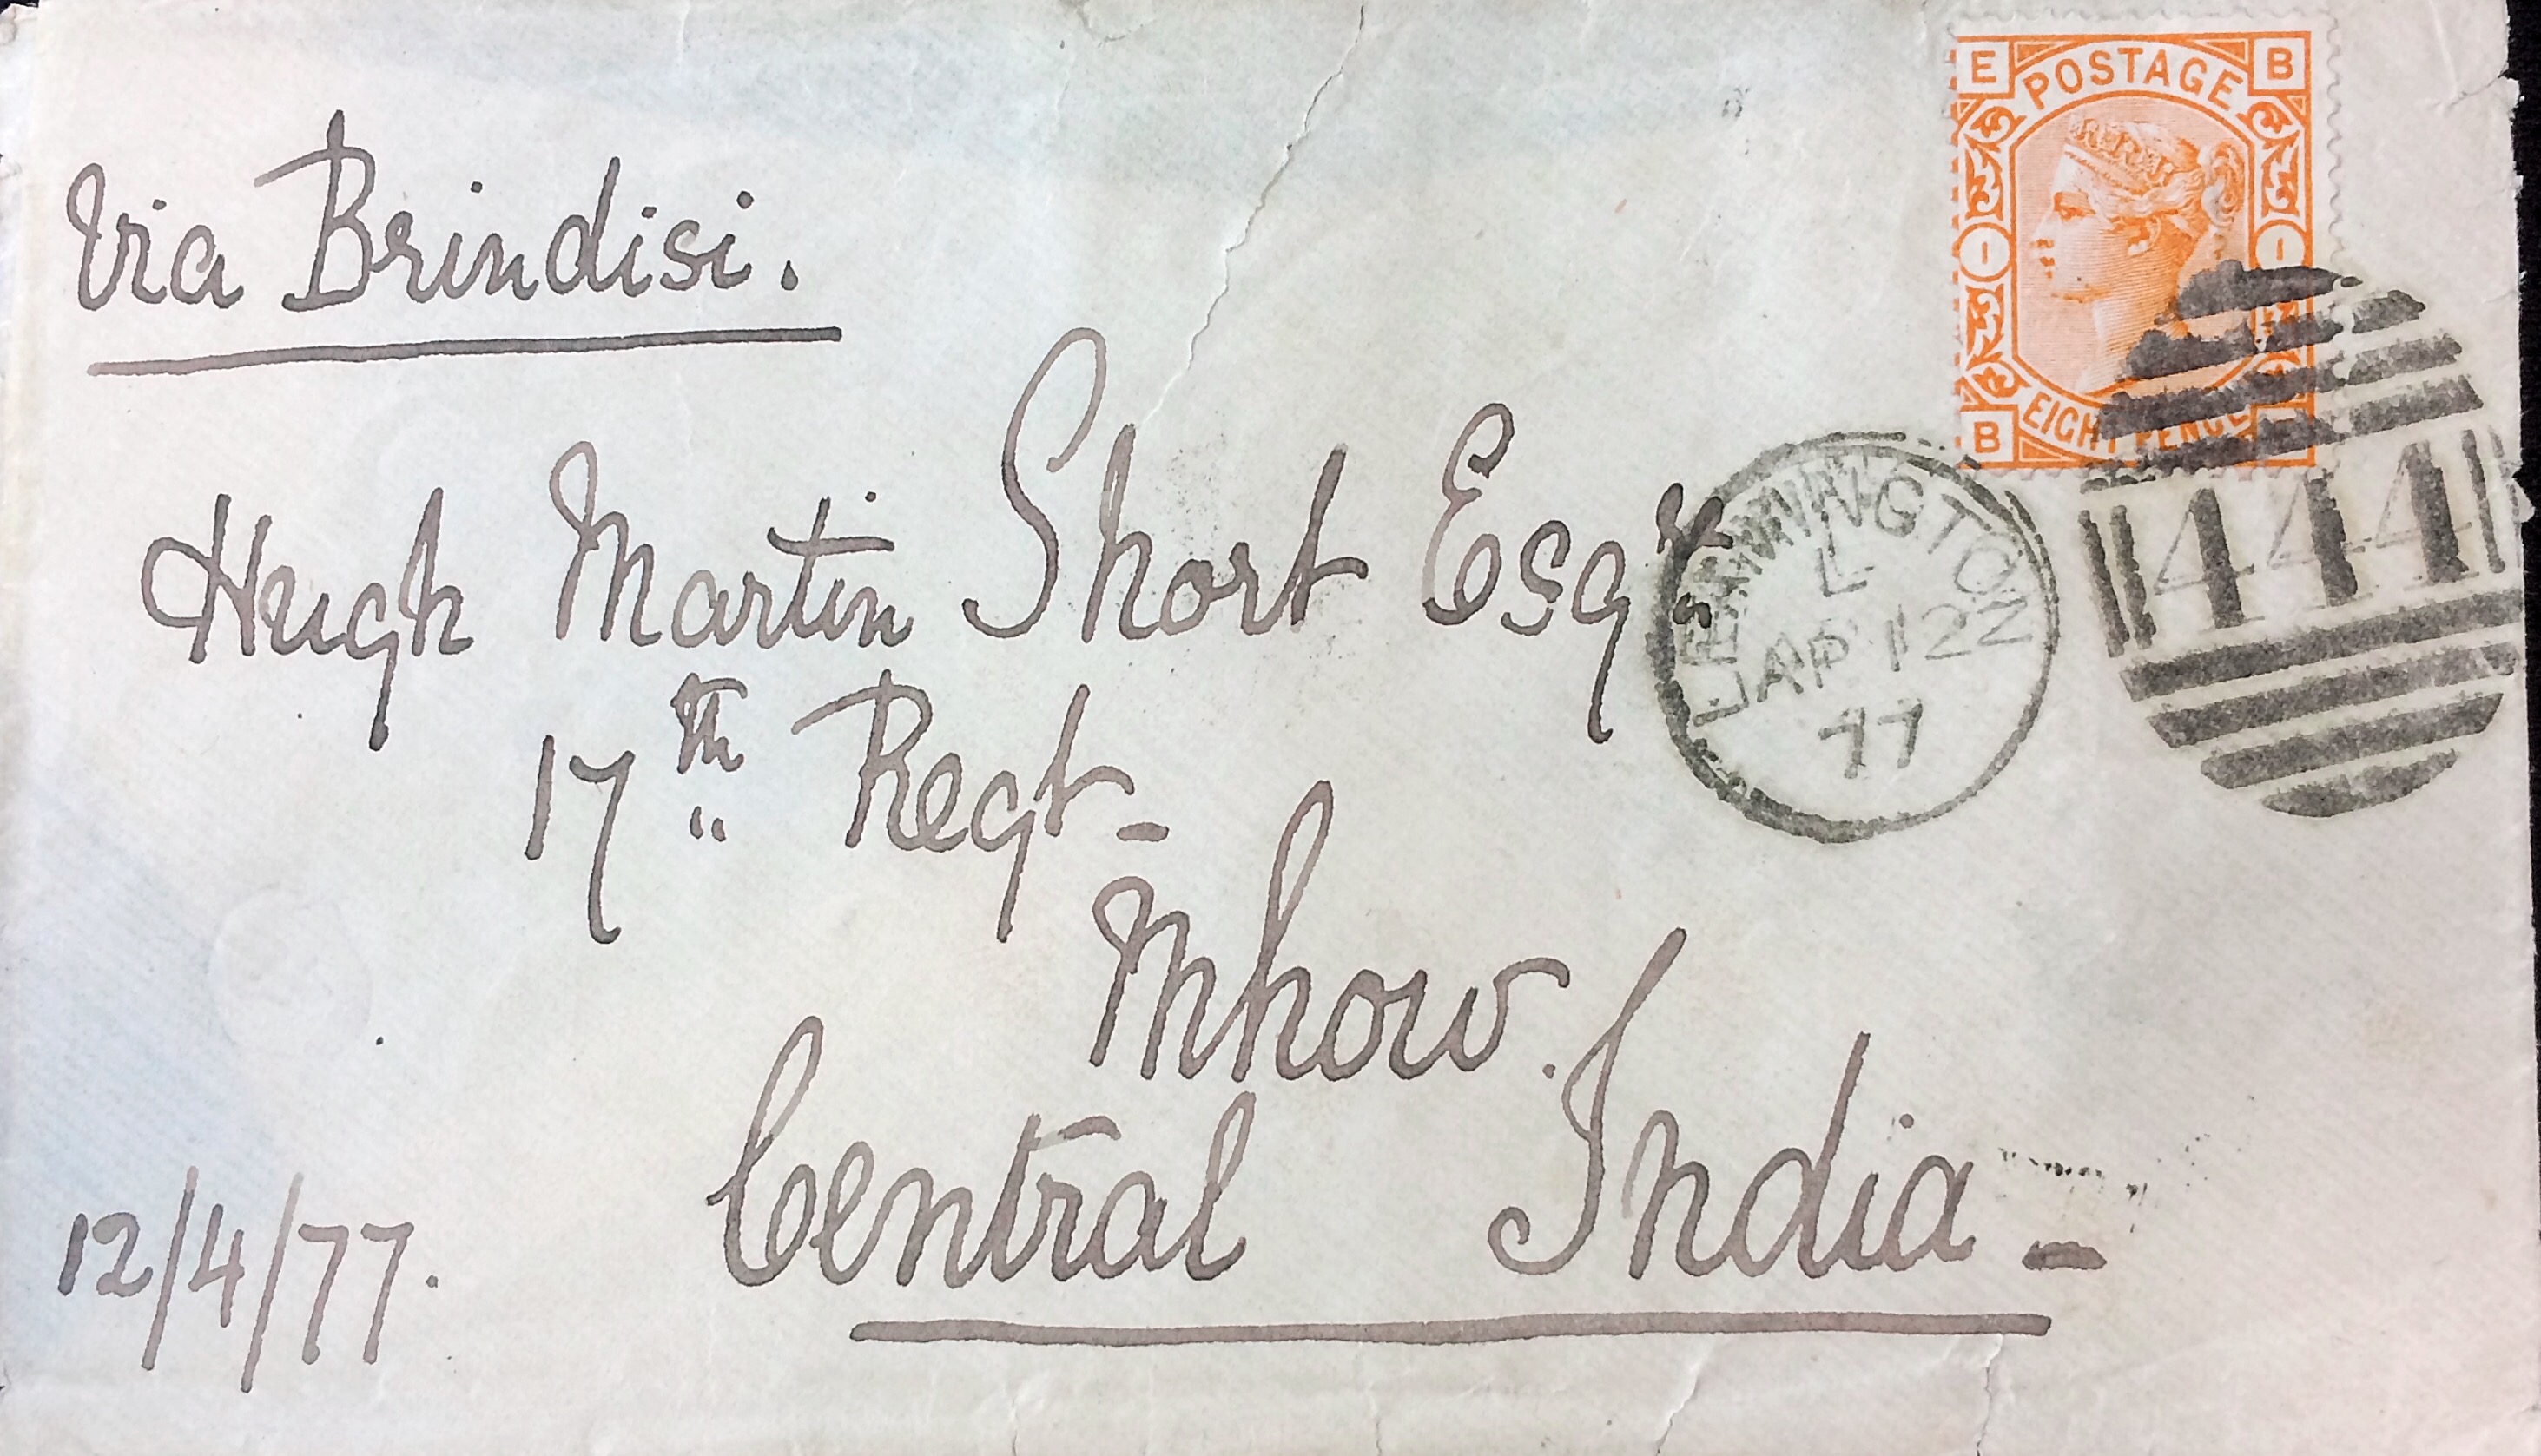 Via Brindisi.
E POSTAGE B
EIGHT PENCE
B
Hugh Martin Short Esqr
17th Regt -
Mhow.
Central India -
12/4/77.
LEAMINGTON
L
AP 12
77
444